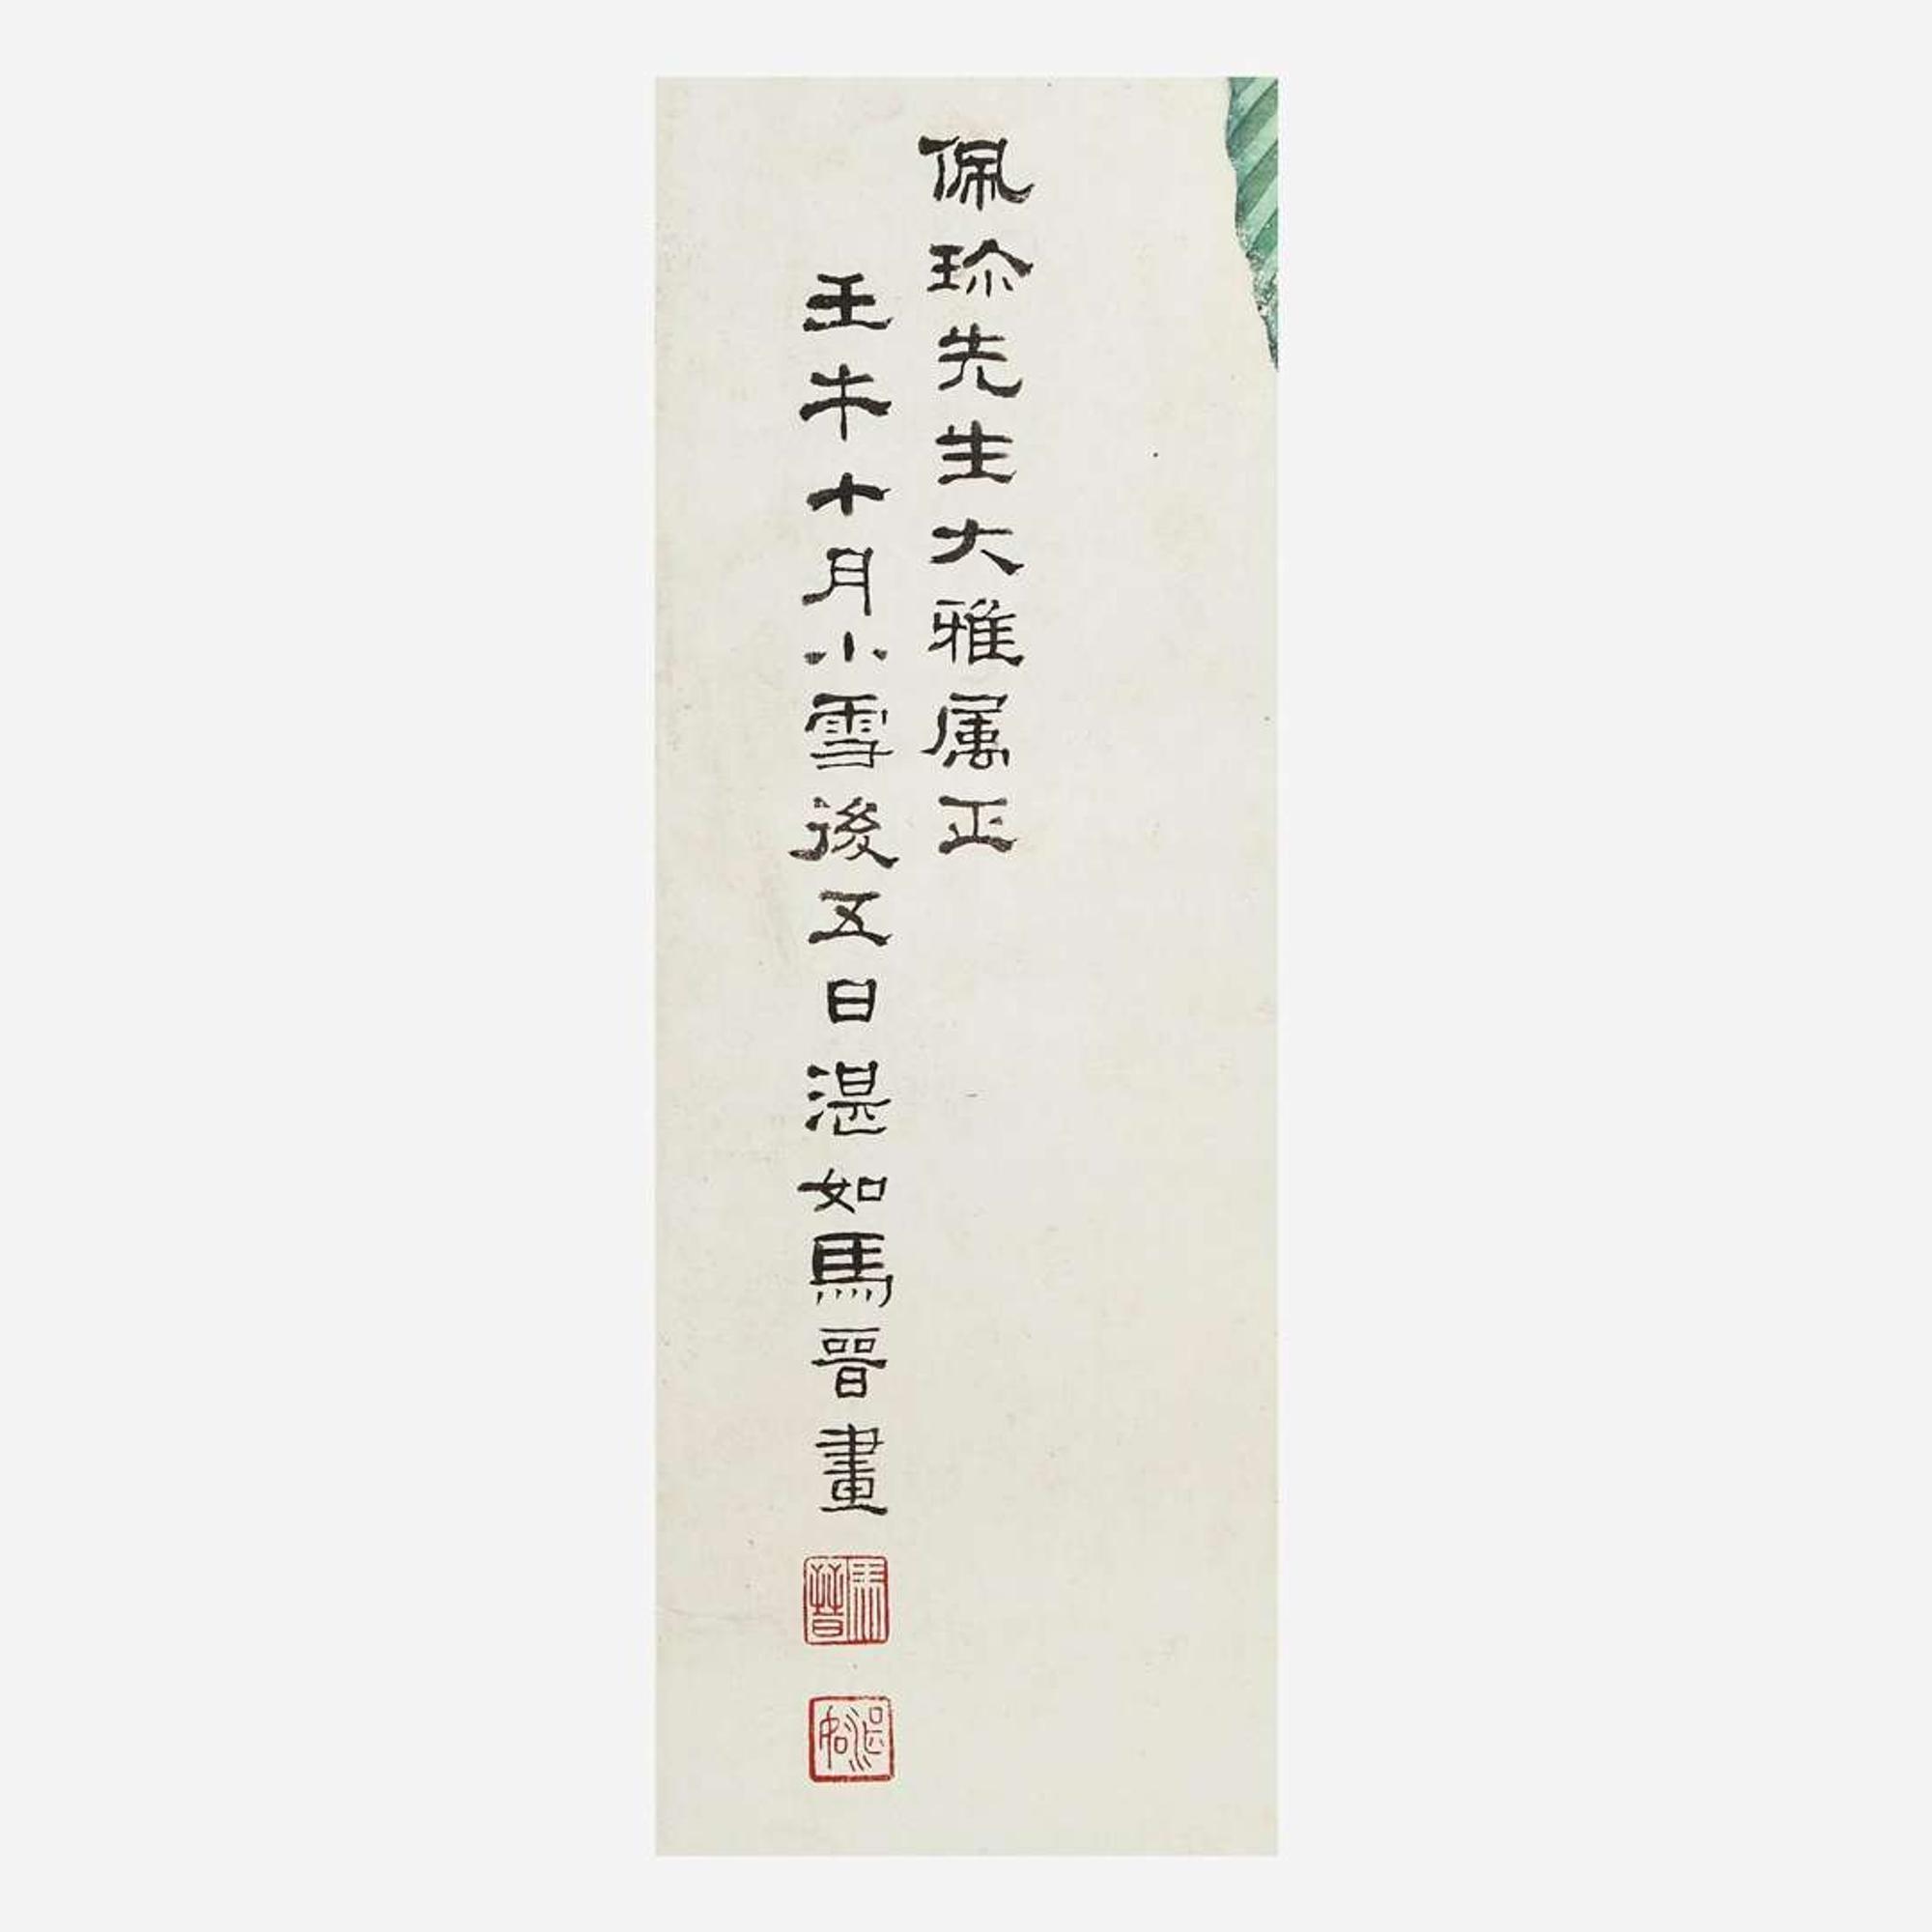 佩珎先生大雅属正
壬午十月小雪後五日湛如馬晉畫
馬晉
湛如